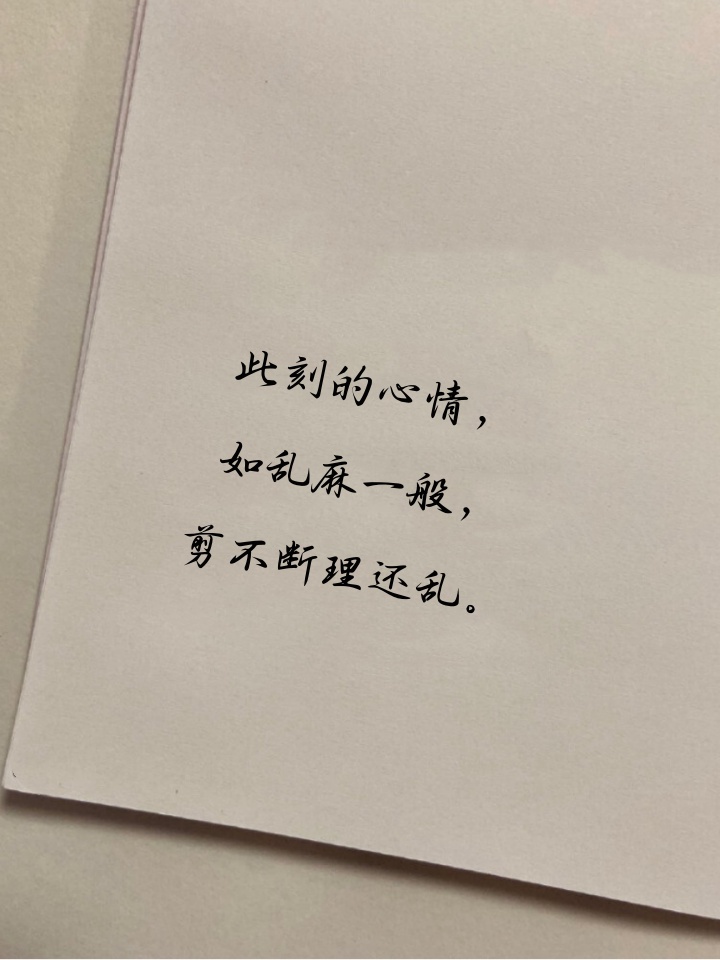 此刻的心情，
如乱麻一般，
剪不断理还乱。